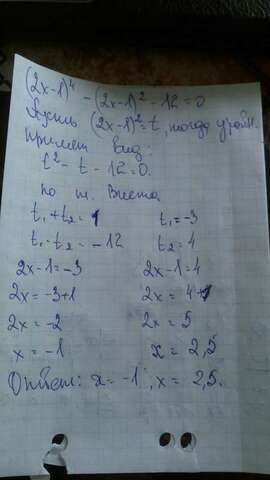 (2x-1)⁴ - (2x-1)² - 12 = 0
Пусть (2x-1)² = t, тогда уравн.
примет вид:
t² - t - 12 = 0.
по т. Виета
t₁ + t₂ = 1 t₁ = -3
t₁ · t₂ = -12 t₂ = 4
2x-1 = -3 2x-1 = 4
2x = -3+1 2x = 4+1
2x = -2 2x = 5
x = -1 x = 2,5
Ответ: x = -1; x = 2,5.